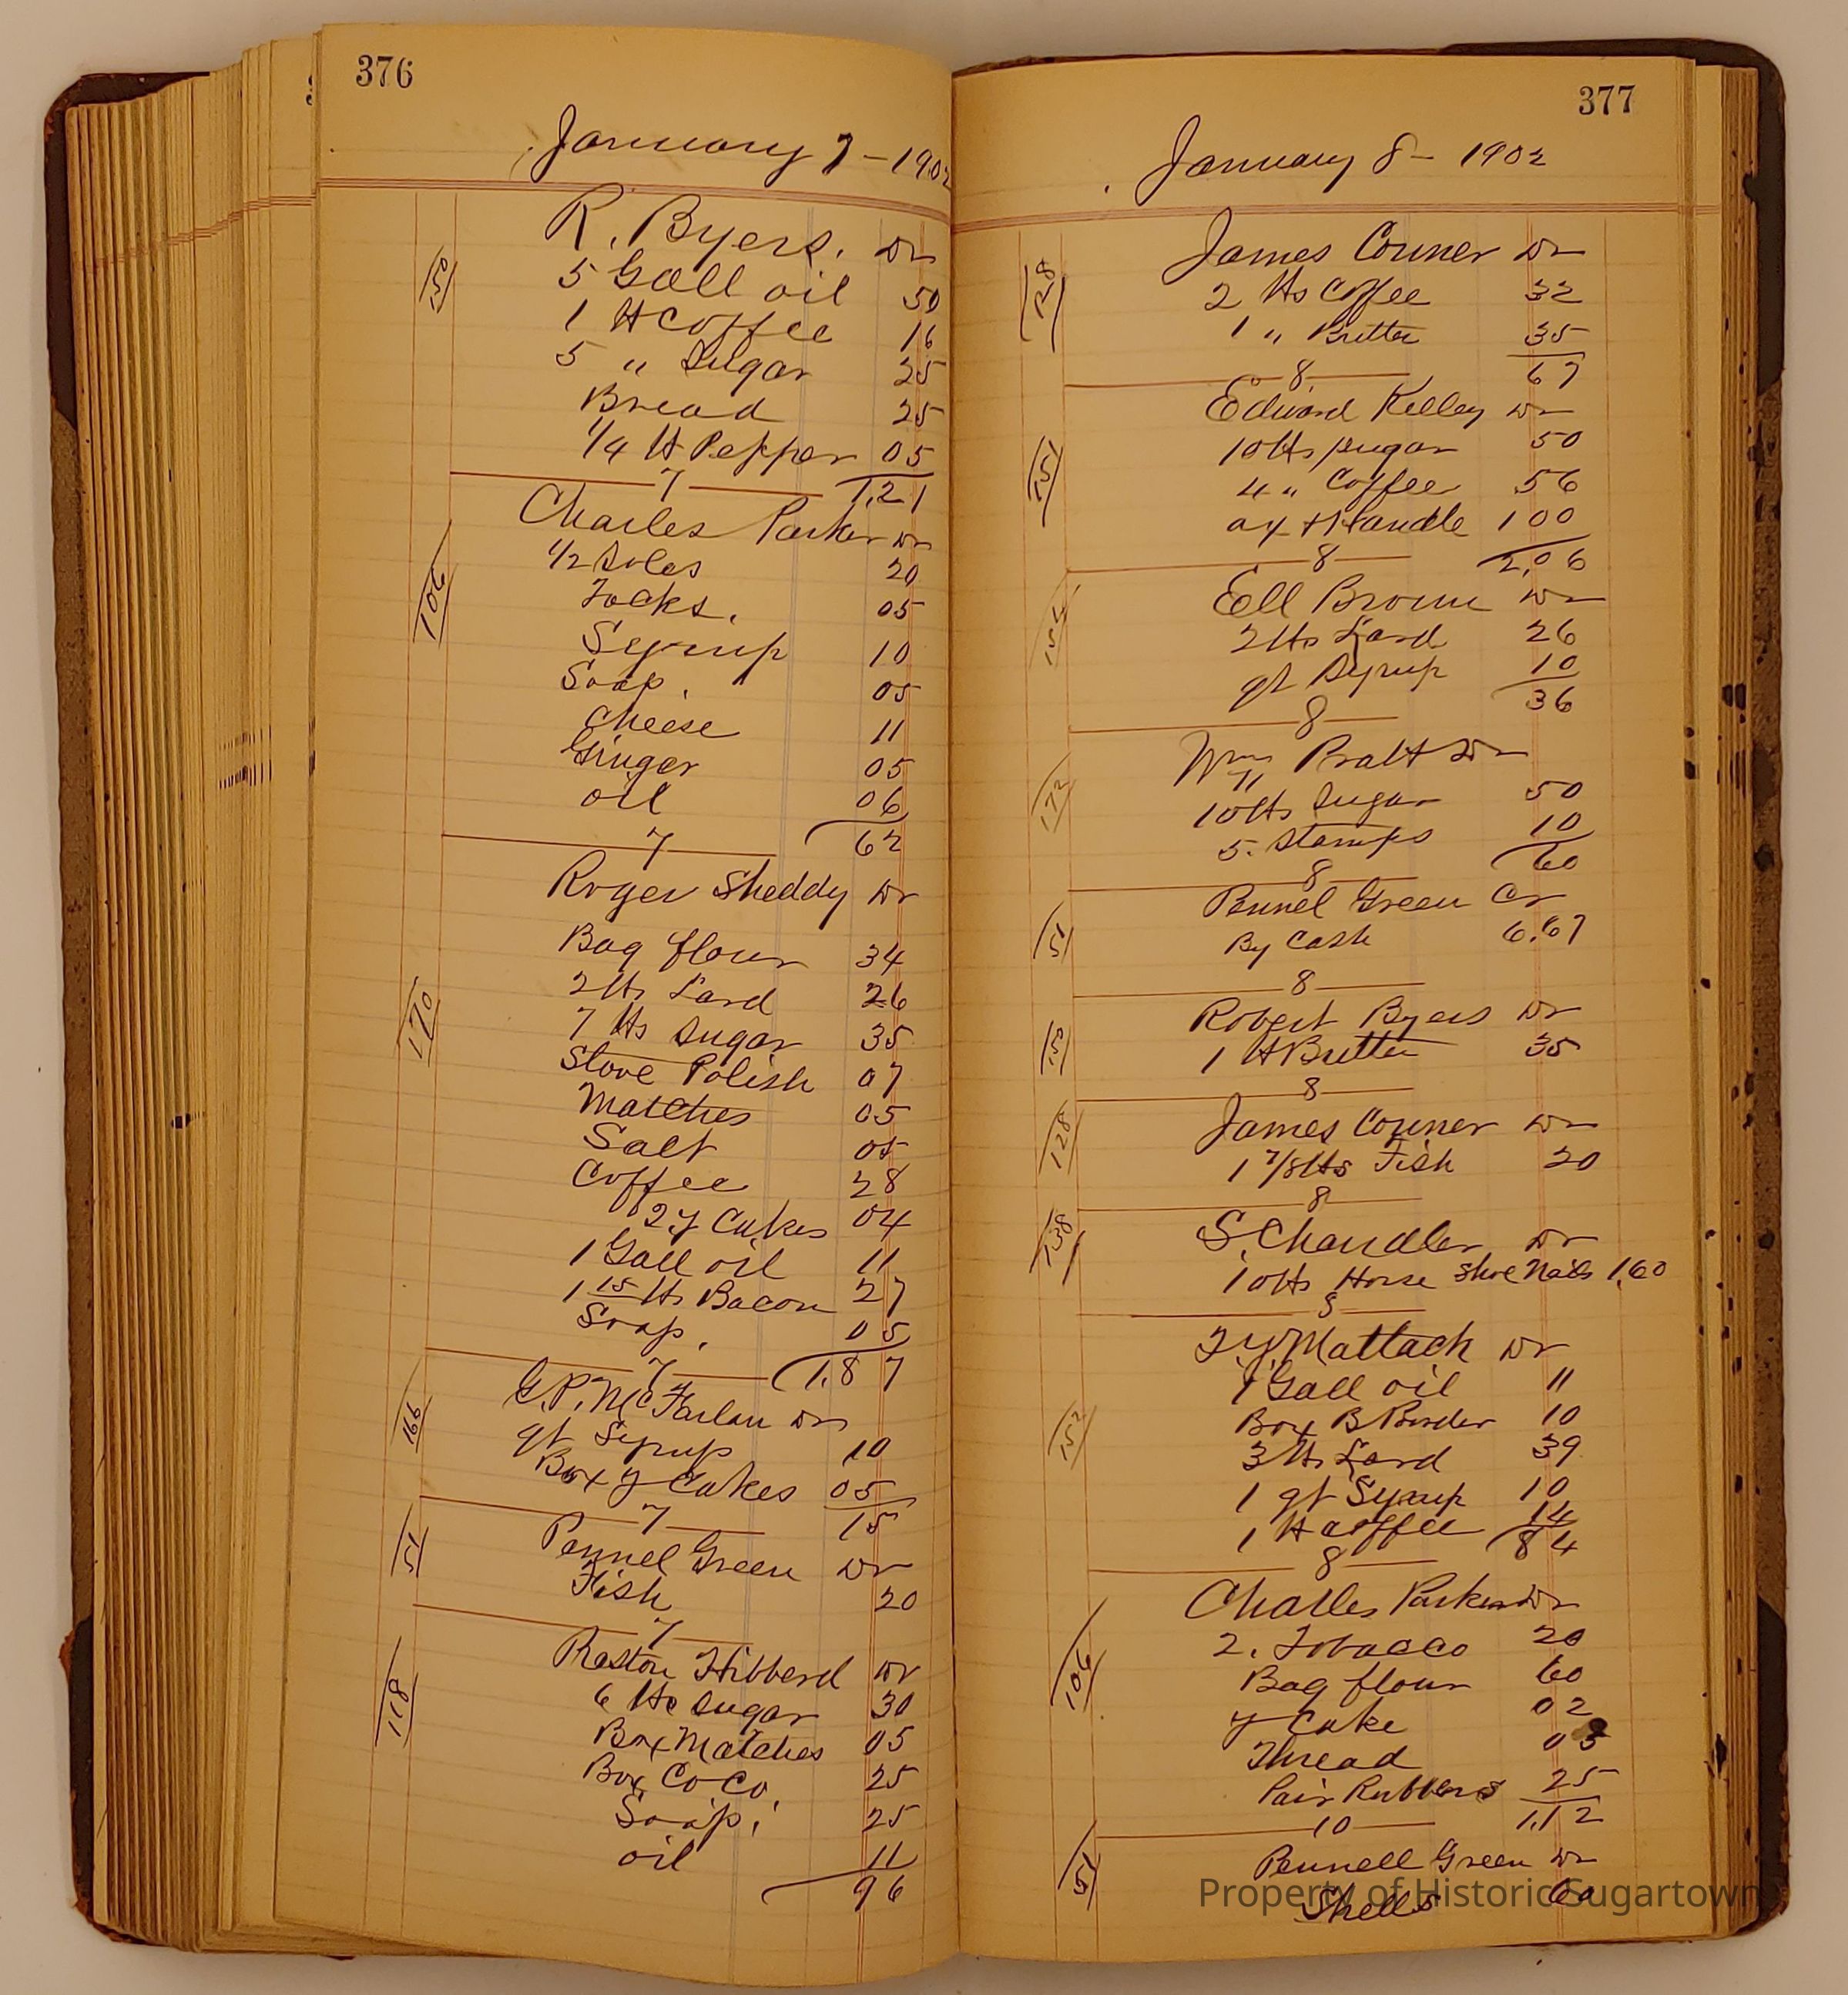 376
January 7 - 1902
R. Byers. Dr
150
5 Gall oil 50
1 lb Coffee 16
5 " Sugar 25
Bread 25
1/4 lb Pepper 05
7 1.21
Charles Parker Dr
106
1/2 Soles 20
Tacks. 05
Syrup 10
Soap. 05
Cheese 11
Ginger 05
oil 06
7 62
Roger Sheddy Dr
170
Bag flour 34
2 lbs Lard 26
7 lbs Sugar 35
Stove Polish 07
Matches 05
Salt 05
Coffee 28
2 y Cakes 04
1 Gall oil 11
1 15 lbs Bacon 27
Soap. 05
7 1.87
G.P. McFarlan Dr
166
qt Syrup 10
Box y Cakes 05
7 15
Pennel Green Dr
51
Fish 20
7
Reston Hibberd Dr
118
6 lbs Sugar 30
Box Matches 05
Box CoCo. 25
Soap. 25
oil 11
96
377
January 8 - 1902
James Conner Dr
128
2 lbs Coffee 32
1 " Butter 35
8 67
Edward Kelley Dr
151
10 lbs sugar 50
4 " Coffee 56
ax + Handle 1 00
8 2,06
Ell Brown Dr
2 lbs Lard 26
qt Syrup 10
36
8
Wm Pratt Dr
172
10 lbs Sugar 50
5. Stamps 10
8 60
Pennel Green Cr
51
By Cash 6.67
8
Robert Byers Dr
150
1 lb Butter 35
8
James Conner Dr
128
1 7/8 lbs Fish 20
8
S. Chandler Dr
138
10 lbs Horse Shoe Nails 1,60
8
Mattack Dr
152
1 Gall oil 11
Box B Powder 10
3 lbs Lard 39
1 qt Syrup 10
1 lb coffee 14
8 84
Charles Parker Dr
106
2. Tobacco 20
Bag flour 60
y Cake 02
Thread 05
Pair Rubbers 25
10 1.12
Pennell Green Dr
51
Shells 60
Property of Historic Sugartown